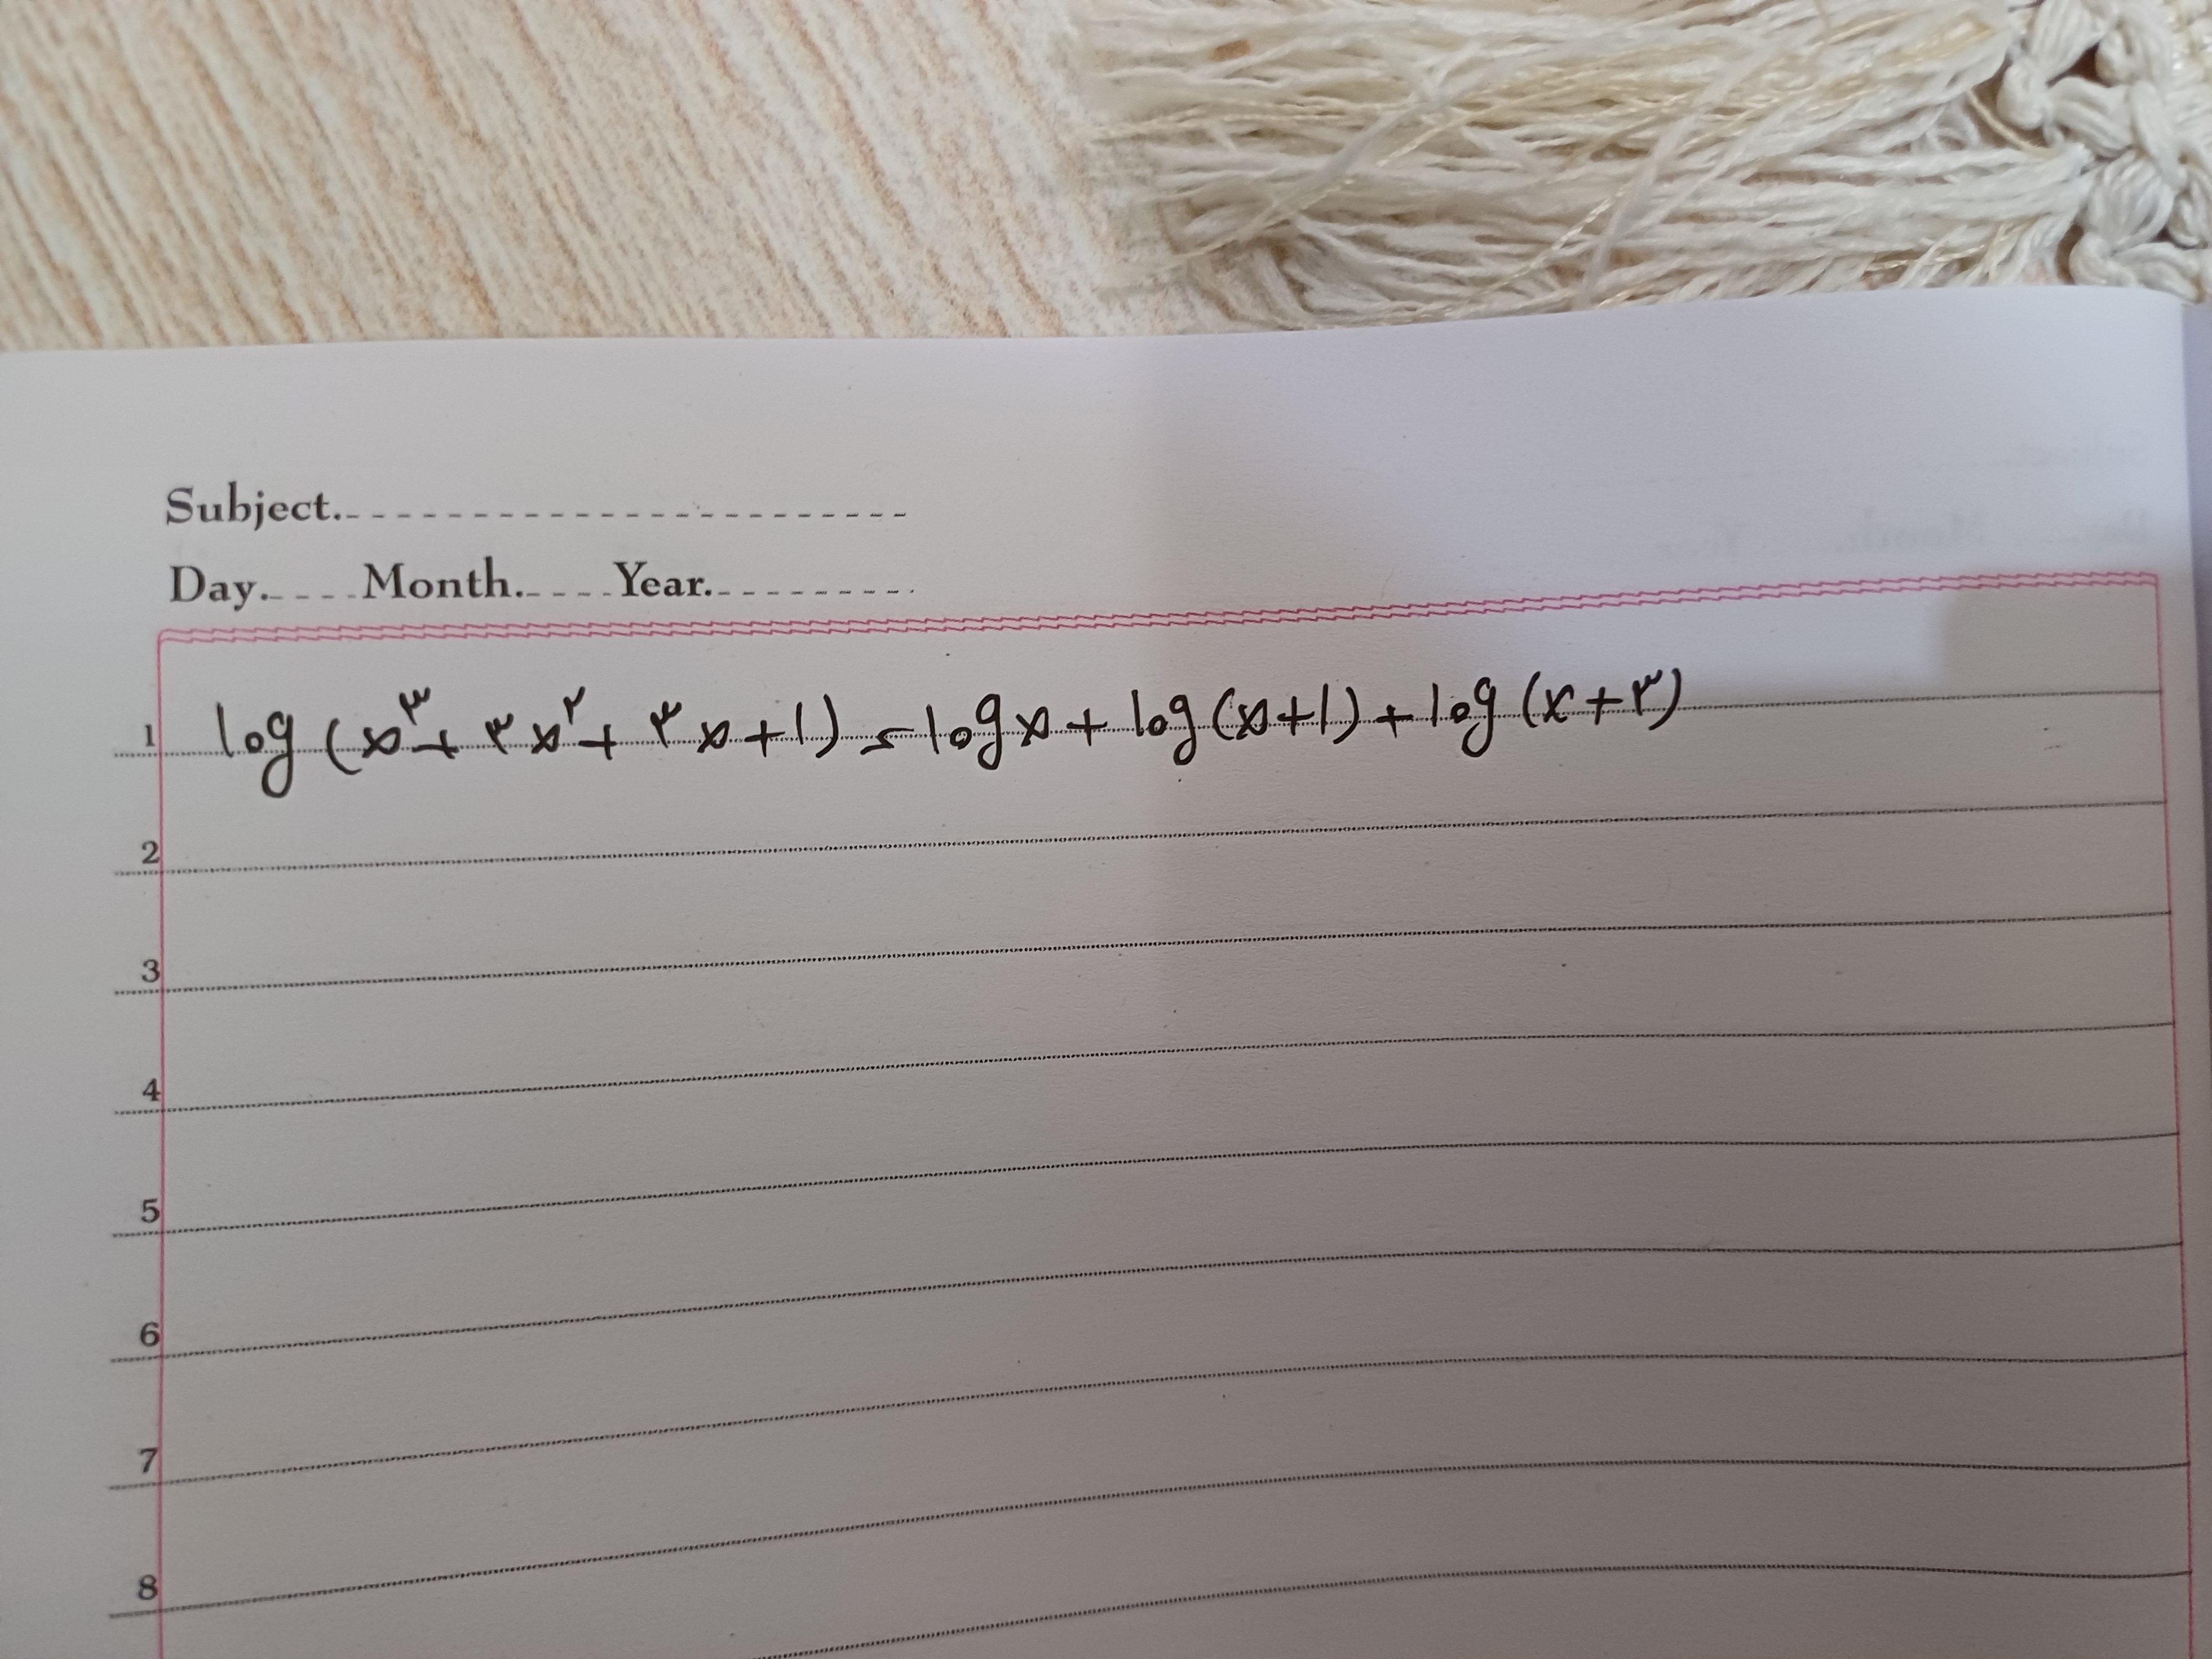 Subject.
Day. Month. Year.
1 log (x^۳ + ۳x^۲ + ۳x + 1) = log x + log (x+1) + log (x+۳)
2
3
4
5
6
7
8